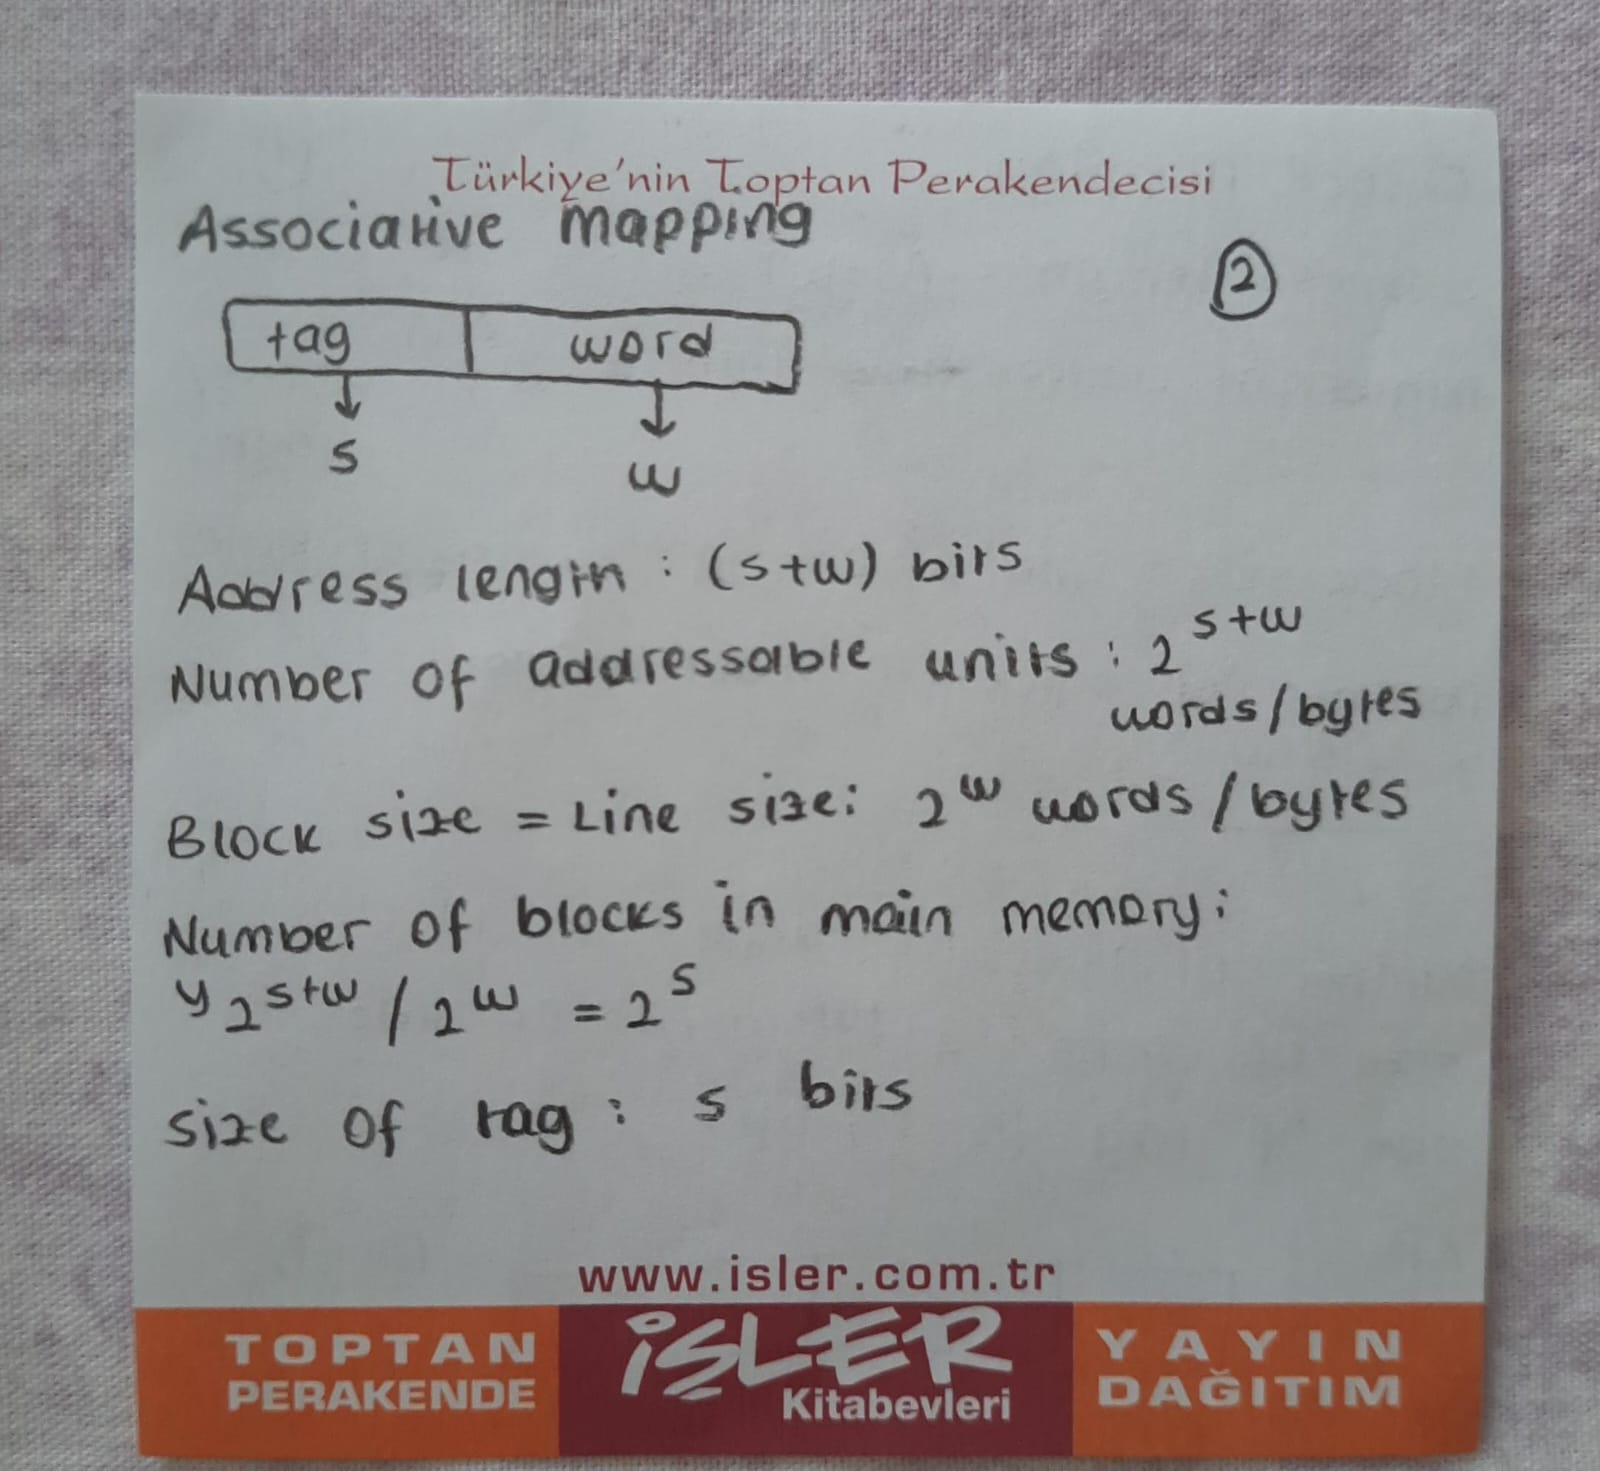 Türkiye'nin Toptan Perakendecisi
Associative mapping
2
tag word
s w
Address length : (s+w) bits
Number of addressable units : 2^s+w
words/bytes
Block size = Line size: 2^w words/bytes
Number of blocks in main memory:
2^s+w / 2^w = 2^s
size of tag : s bits
www.isler.com.tr
TOPTAN
PERAKENDE
İŞLER
Kitabevleri
YAYIN
DAĞITIM